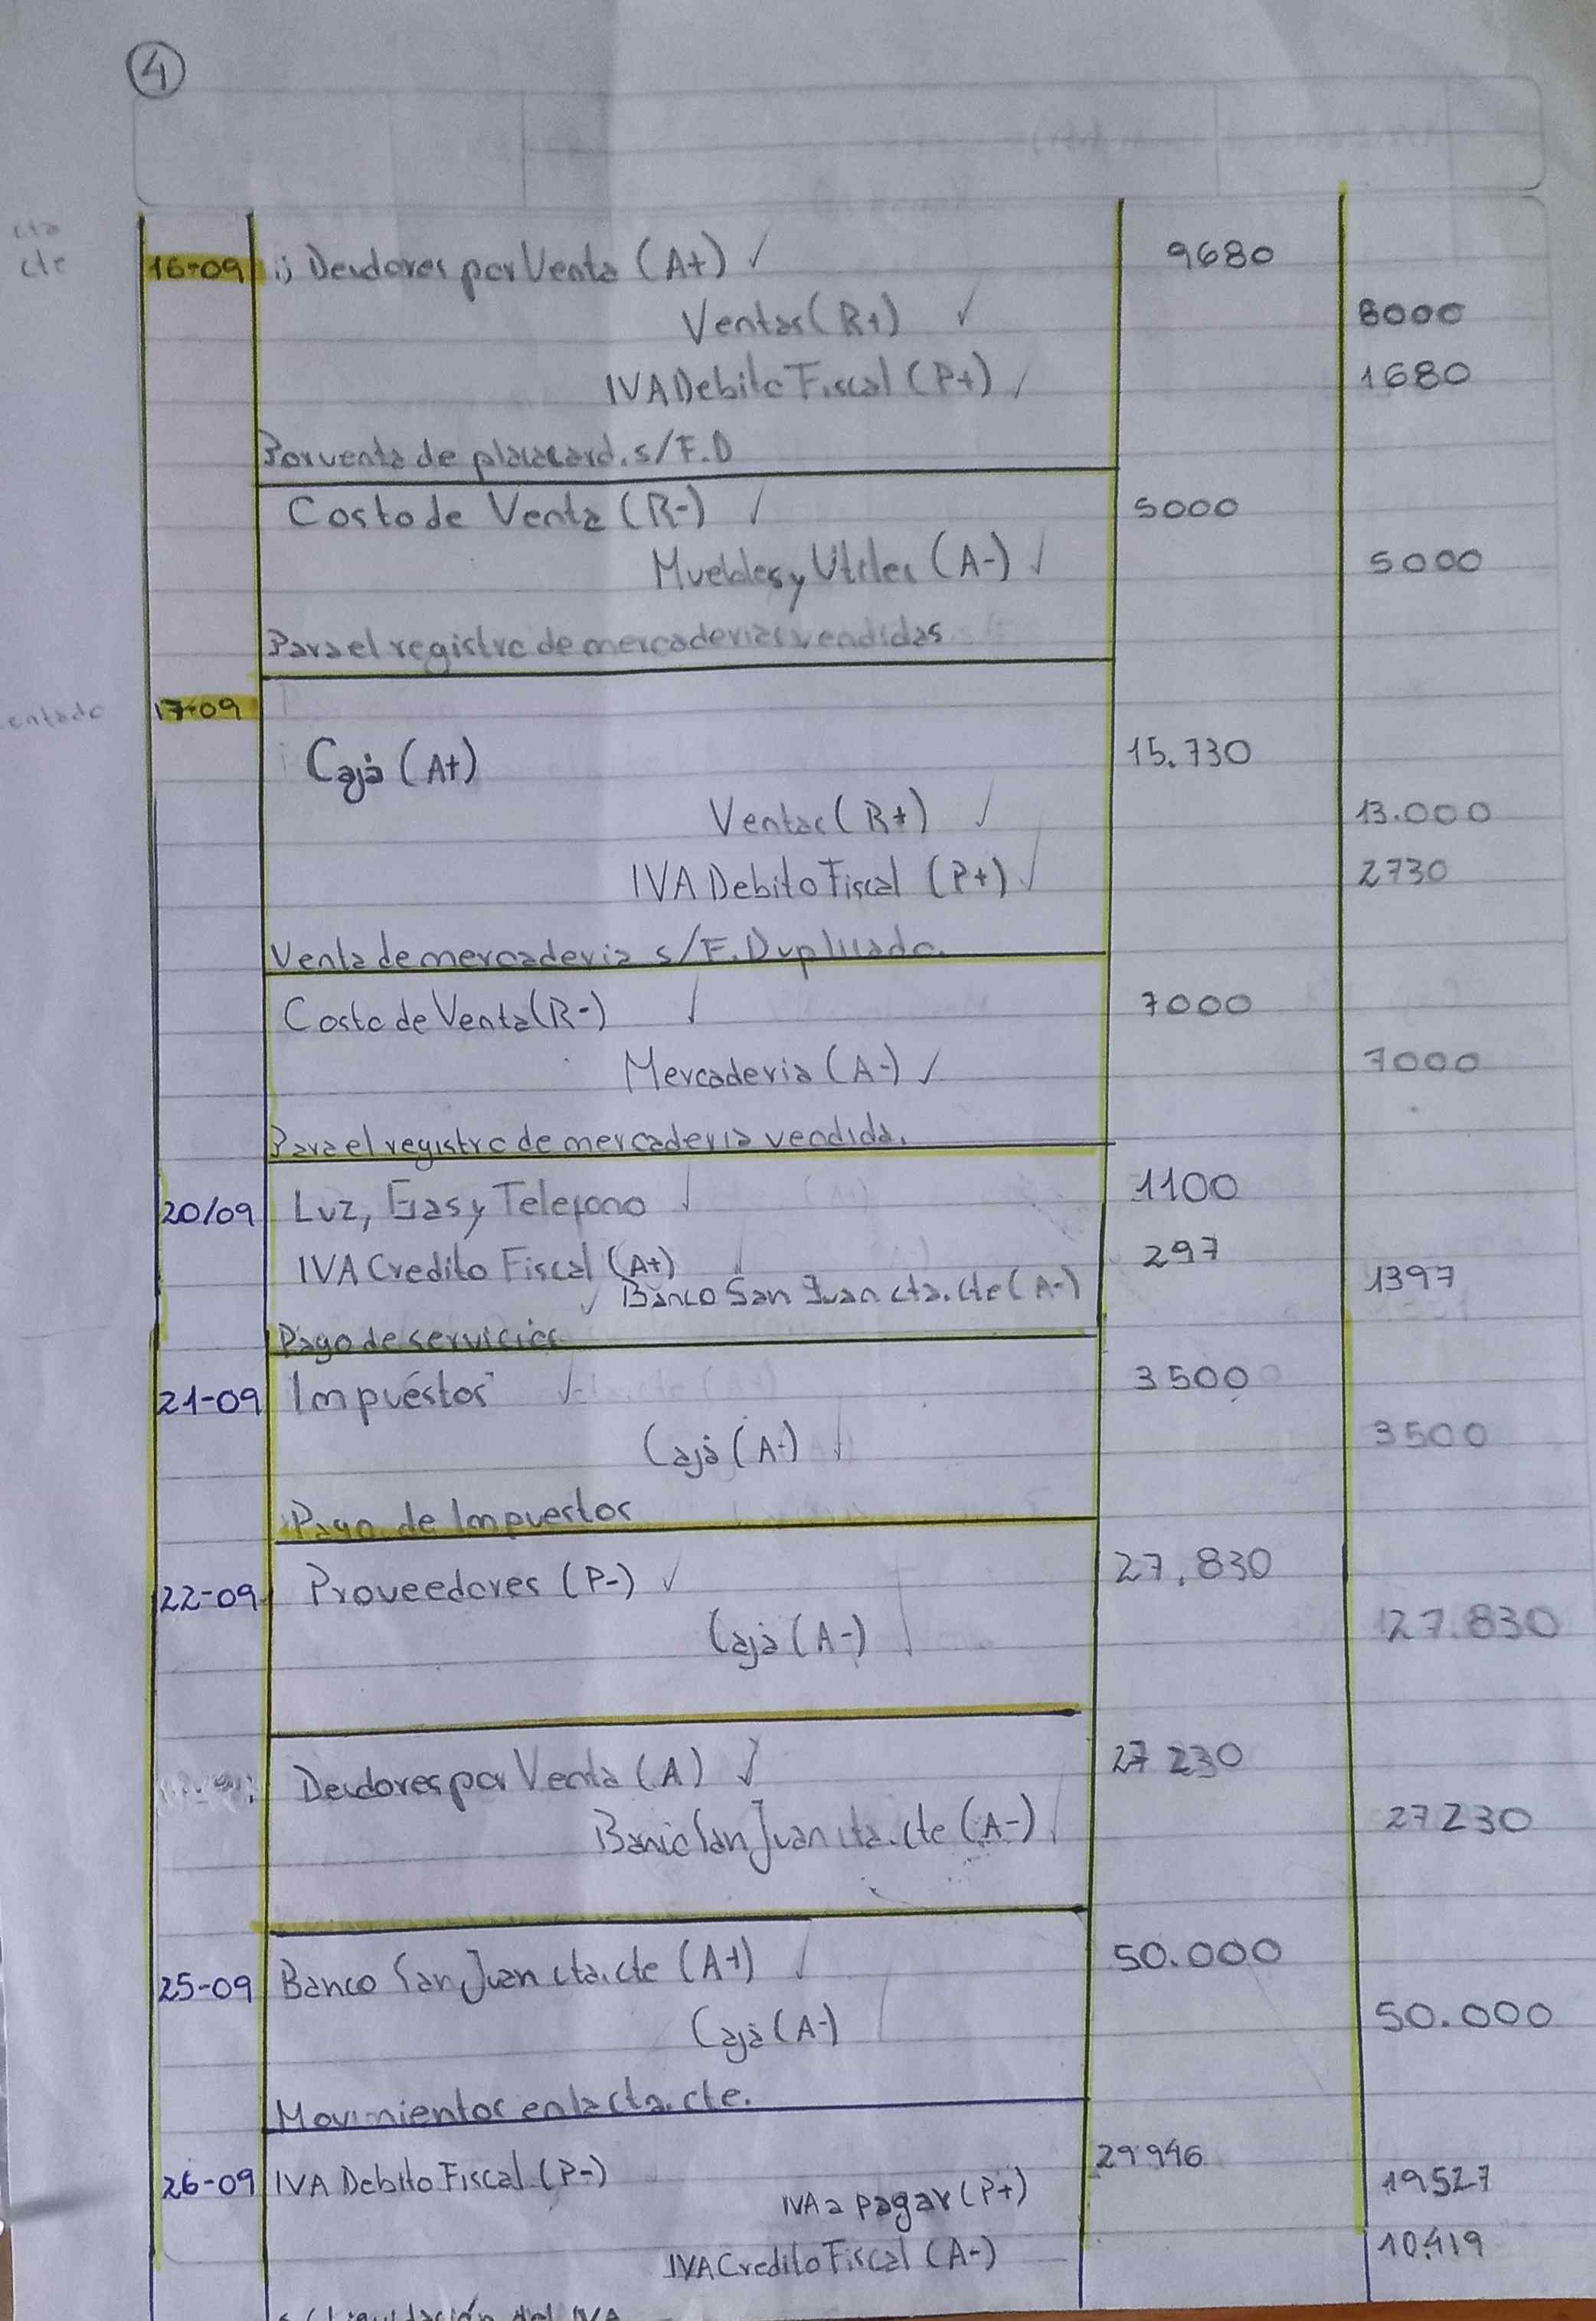 4
cta
cte
16-09 1) Deudores por Venta (A+) ✓ 9680
Ventas (R+) ✓ 8000
IVA Debito Fiscal (P+) ✓ 1680
Por venta de placacard. s/F.D
Costo de Venta (R-) ✓ 5000
Muebles y Utiles (A-) ✓ 5000
Para el registro de mercaderias vendidas
17-09
Caja (A+) 15.730
Ventas (R+) ✓ 13.000
IVA Debito Fiscal (P+) ✓ 2730
Venta de mercaderia s/F. Duplicado.
Costo de Venta (R-) ✓ 7000
Mercaderia (A-) ✓ 7000
Para el registro de mercaderia vendida.
20/09 Luz, Gas y Telefono ✓ 1100
IVA Credito Fiscal (A+) ✓ 297
✓ Banco San Juan cta. cte (A-) 1397
Pago de servicios
21-09 Impuestos ✓ 3500
Caja (A-) ✓ 3500
Pago de Impuestos
22-09 Proveedores (P-) ✓ 27.830
Caja (A-) ✓ 27.830
Deudores por Venta (A) ✓ 27230
Banco San Juan cta. cte (A-) 27230
25-09 Banco San Juan cta. cte (A+) ✓ 50.000
Caja (A-) ✓ 50.000
Movimientos en la cta. cte.
26-09 IVA Debito Fiscal (P-) 29946
IVA a pagar (P+) 19527
IVA Credito Fiscal (A-) 10419
Liquidación del IVA